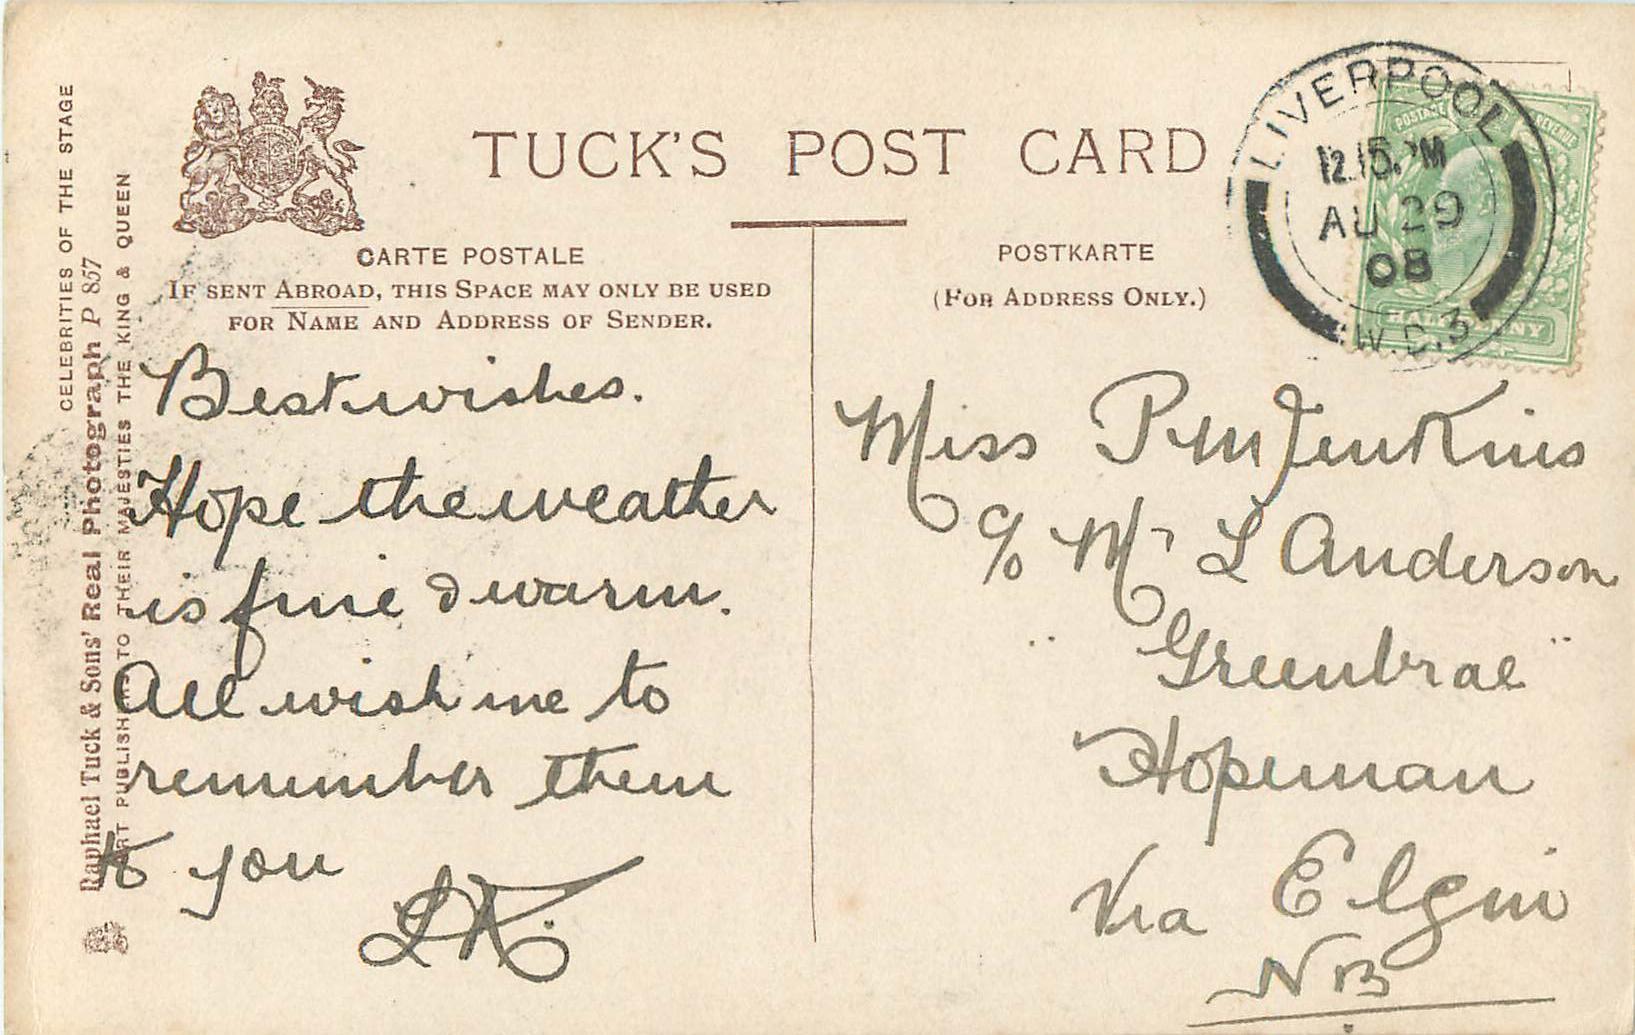 TUCK'S POST CARD
CARTE POSTALE
IF SENT ABROAD, THIS SPACE MAY ONLY BE USED
FOR NAME AND ADDRESS OF SENDER.
POSTKARTE
(FOR ADDRESS ONLY.)
LIVERPOOL
12.15 PM
AU 29
08
W.D.3
POSTAGE REVENUE
HALF PENNY
CELEBRITIES OF THE STAGE
Raphael Tuck & Sons' Real Photograph P 857
ART PUBLISHERS TO THEIR MAJESTIES THE KING & QUEEN
Best wishes.
Hope the weather
is fine & warm.
All wish me to
remember them
to you
LK.
Miss P M Jenkins
c/o Mr L Anderson
"Greenbrae"
Hopeman
Via Elgin
NB